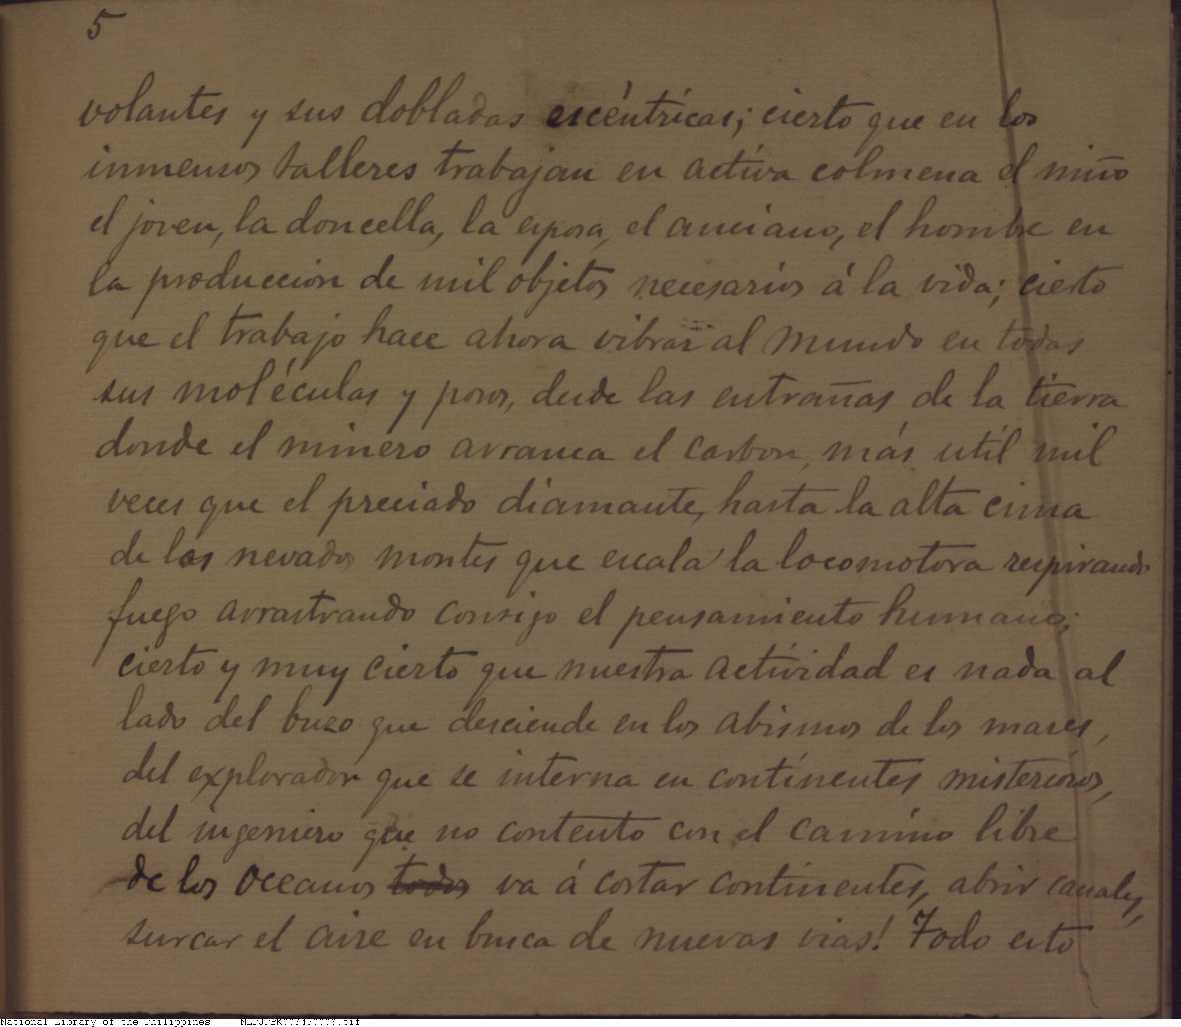 5
volantes y sus dobladas escéntricas; cierto que en los
inmensos talleres trabajan en activa colmena el niño
el joven, la doncella, la esposa, el anciano, el hombre en
la produccion de mil objetos necesarios á la vida; cierto
que el trabajo hace ahora vibrar al mundo en todas
sus moléculas y poros, desde las entrañas de la tierra
donde el minero arranca el carbon, más util mil
veces que el preciado diamante, hasta la alta cima
de los nevados montes que escala la locomotora respirando
fuego arrastrando consigo el pensamiento humano;
cierto y muy cierto que nuestra actividad es nada al
lado del buzo que desciende en los abismos de los mares,
del explorador que se interna en continentes misteriosos,
del ingeniero que no contento con el camino libre
de los oceanos todos va á cortar continentes, abrir canales,
surcar el aire en busca de nuevas vias! Todo esto
National Library of the Philippines